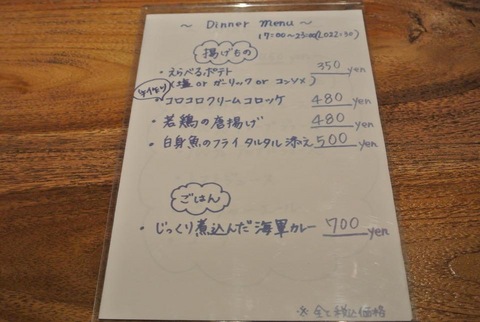 ~ Dinner menu ~
17:00~23:00(L.O22:30)
揚げもの
・えらべるポテト 350 yen
(塩 or ガーリック or コンソメ)
・コロコロクリームコロッケ 480 yen
・若鶏の唐揚げ 480 yen
・白身魚のフライ タルタル添え 500 yen
ごはん
・じっくり煮込んだ海軍カレー 700 yen
※全て税込価格